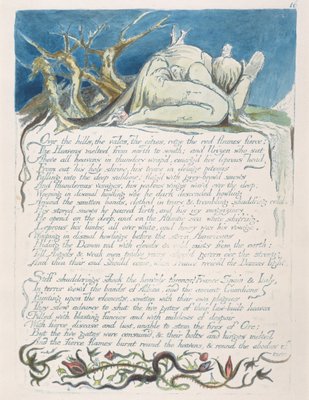 16
Over the hills, the vales, the cities, rage the red flames fierce;
The Heavens melted from north to south; and Urizen who sat
Above all heavens in thunders wrap'd, emerg'd his leprous head
From out his holy shrine, his tears in deluge piteous
Falling into the deep sublime! flag'd with grey-brow'd snows
And thunderous visages, his jealous wings wav'd over the deep;
Weeping in dismal howling woe he dark descended howling
Around the smitten bands, clothed in tears & trembling shudd'ring cold.
His stored snows he poured forth, and his icy magazines
He open'd on the deep, and on the Atlantic sea white shiv'ring.
Leprous his limbs, all over white, and hoary was his visage.
Weeping in dismal howlings before the stern Americans
Hiding the Demon red with clouds & cold mists from the earth;
Till Angels & weak men twelve years should govern o'er the strong:
And then their end should come, when France reciev'd the Demons light.
Stiff shudderings shook the heav'nly thrones! France Spain & Italy,
In terror view'd the bands of Albion, and the ancient Guardians
Fainting upon the elements, smitten with their own plagues
They slow advance to shut the five gates of their law-built heaven
Filled with blasting fancies and with mildews of despair
With fierce disease and lust, unable to stem the fires of Orc;
But the five gates were consum'd, & their bolts and hinges melted
And the fierce flames burnt round the heavens, & round the abodes of